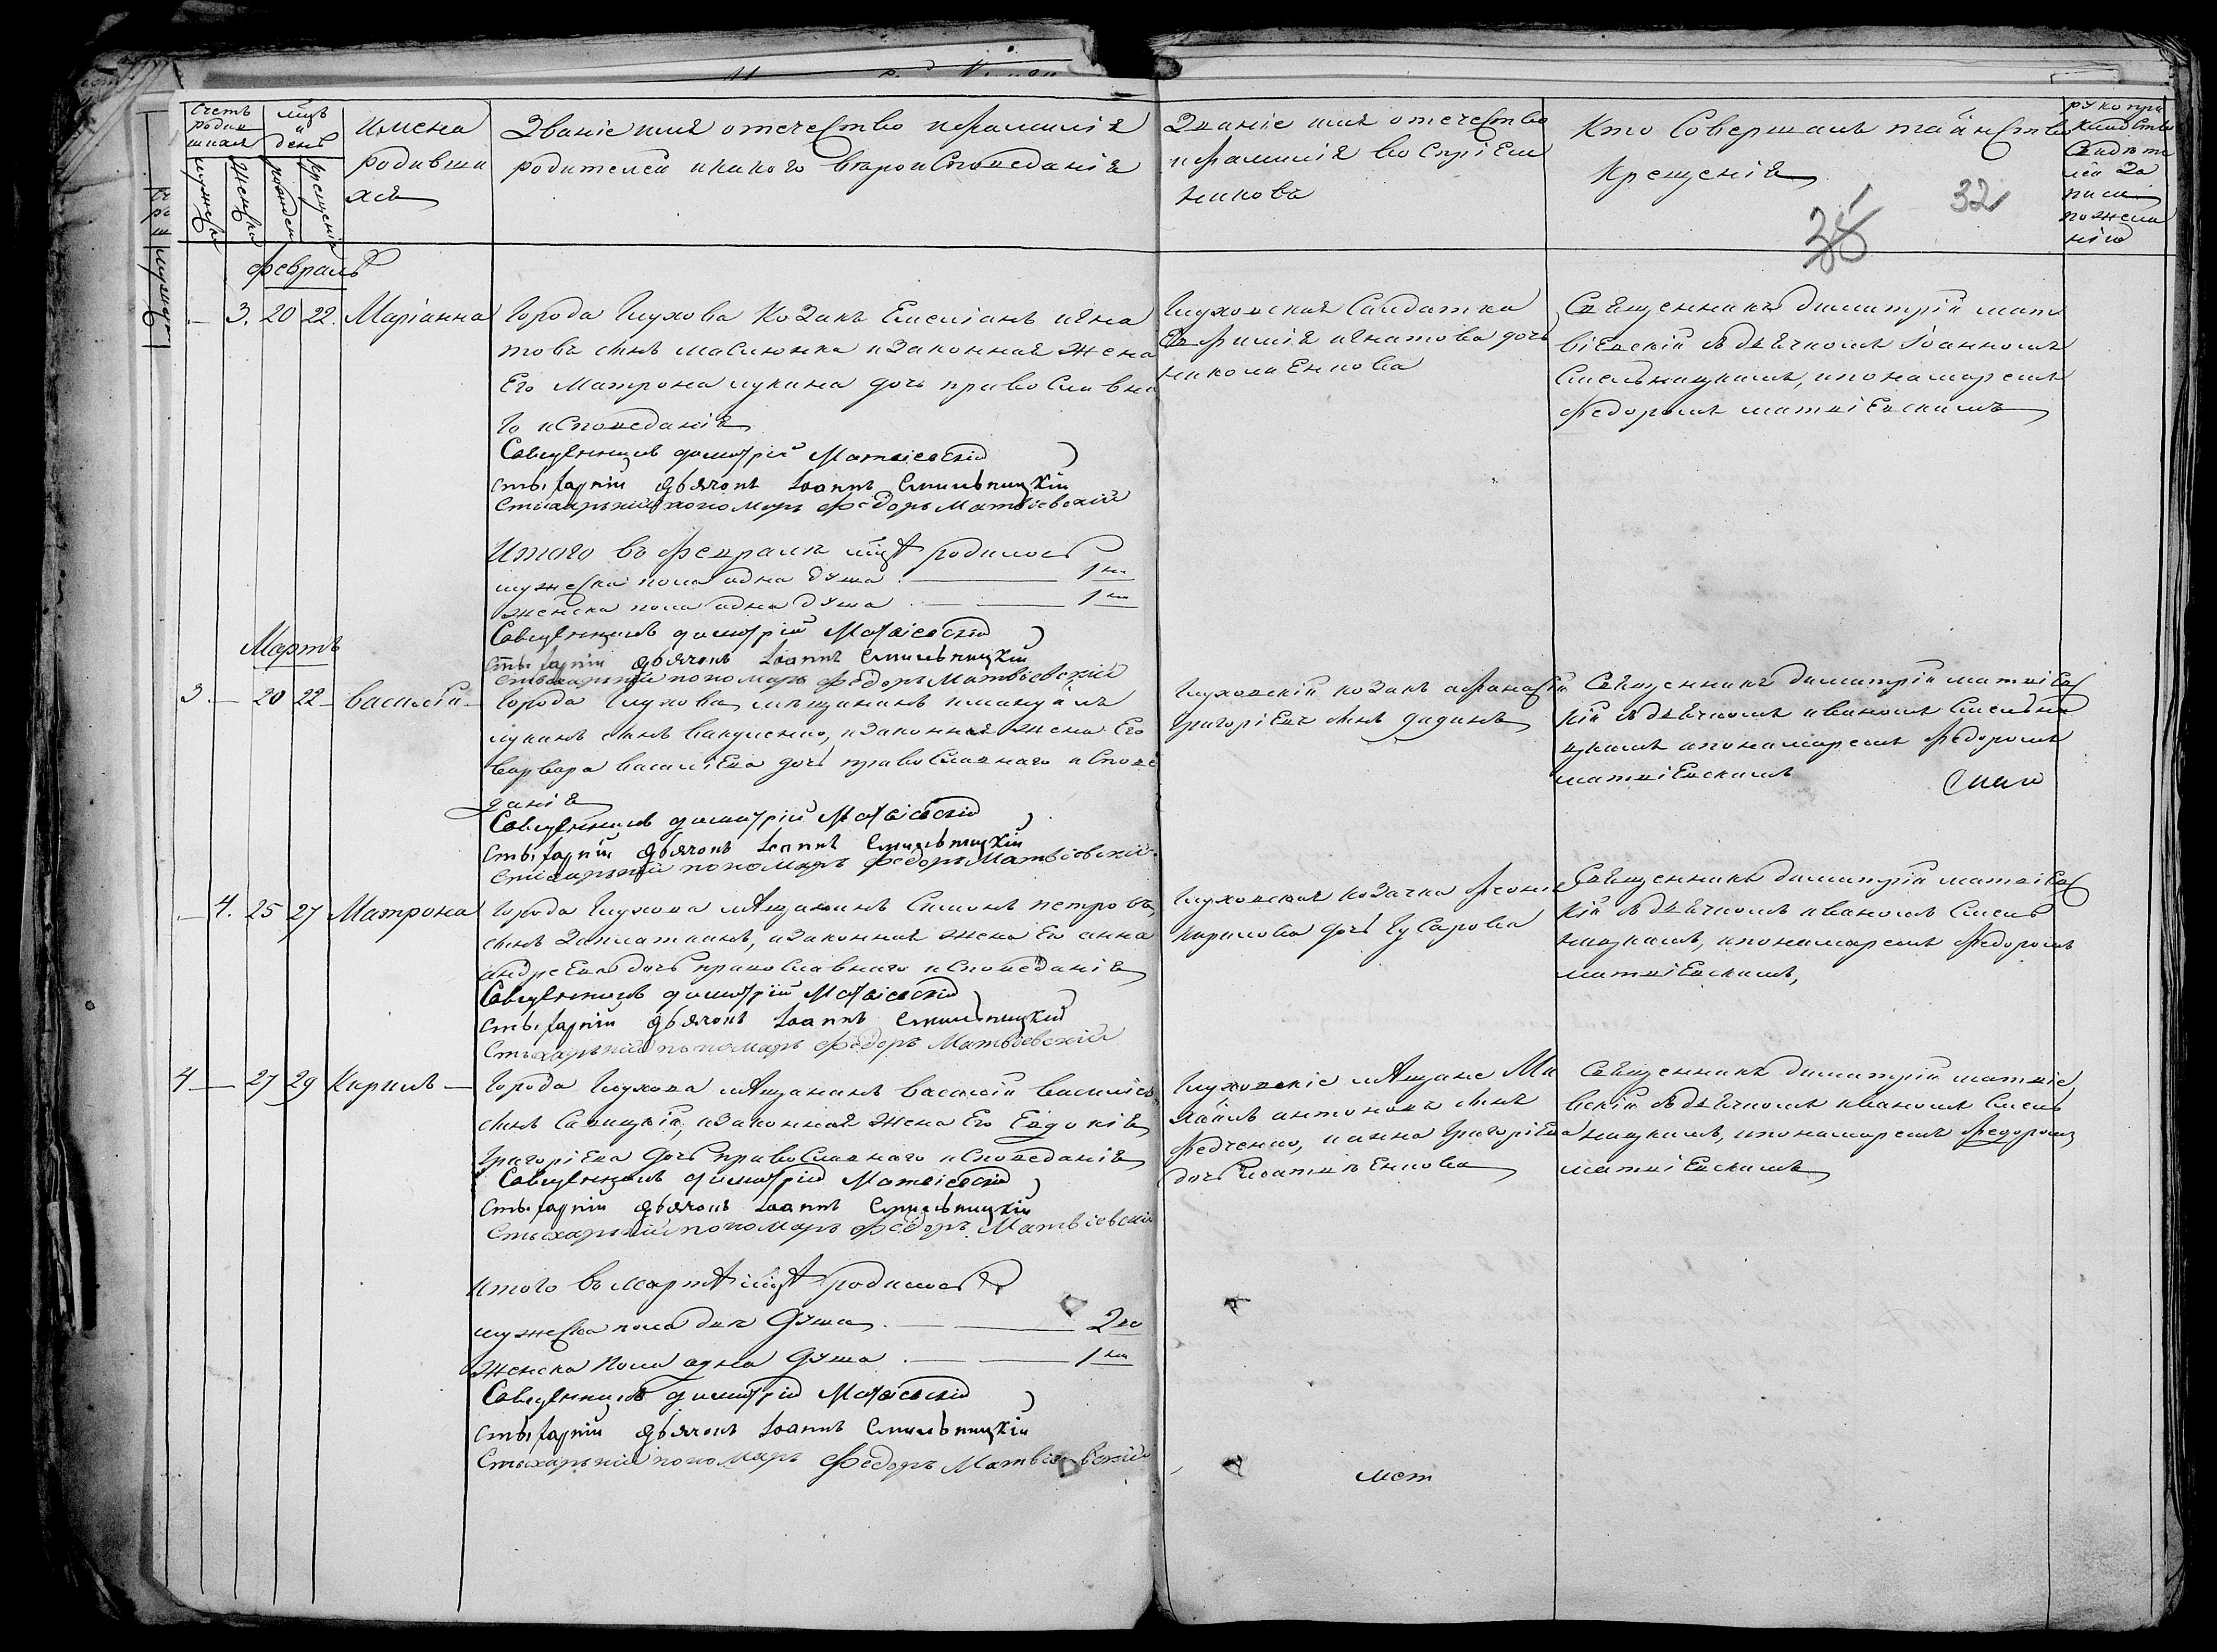 Счетъ родившихся
мужеска
женска
мцъ и день
рожденія
крещенія
Имена
родивши
хся
Званіе имя отечество и фамилія
родителей и какого вѣроисповеданія
Званіе имя отечество
и фамилія воспріем
никовъ
Кто совершалъ таинство
крещенія
рукопри
кладство
свидѣте
лей за
писи
по жела
нію
38
32
февраль
3. 20 22. Маріанна
Города Глухова козакъ Емеліанъ Игна
товъ сынъ Маслюнка и законная жена
Его Матрона Лукина дочь православна
го исповеданія
Священникъ Димитрій Матвіевскій
Стыхарній дьячокъ Іоаннъ Смѣльницкій
Стихарный пономарь Федоръ Матвѣевскій
Глуховская Салдатка
Евфимія Игнатова дочь
Николаенкова
Священникъ Димитрій Мат
віевскій съ дьячкомъ Іоанномъ
Смельницкимъ, и понамаремъ
Федоромъ Матвіевскимъ
Итого въ Февралѣ мцѣ родилось
мужеска пола одна душа 1
женска пола одна душа 1
Священникъ Димитрій Матвіевскій
Стыхарній дьячокъ Іоаннъ Смѣльницкій
Стихарный пономарь Федоръ Матвѣевскій
Мартъ
3 20 22 Василій
Города Глухова мещанинъ
Лукинъ сынъ Вакуленко, и законная жена Его
Варвара Василіева дочь православнаго испове
данія
Священникъ Димитрій Матвіевскій
Стыхарній дьячокъ Іоаннъ Смѣльницкій
Стихарный пономарь Федоръ Матвѣевскій
Глуховскій козакъ Афанасій
Григоріевъ сынъ Дидинъ
Священникъ Димитрій Матвіевс
кій съ дьячкомъ Иваномъ Смельни
цкимъ и понамаремъ Федоромъ
Матвіевскимъ
4. 25 27 Матрона
Города Глухова мѣщанинъ Симонъ Петровъ
сынъ Заплаткинъ, и законная жена Его Анна
Андреева дочь православнаго исповеданія
Священникъ Димитрій Матвіевскій
Стыхарній дьячокъ Іоаннъ Смѣльницкій
Стыхарный пономарь Федоръ Матвѣевскій
Глуховская козачка
Кирилова дочь Гусарова
Священникъ Димитрій Матвіевс
кій съ дьячкомъ Иваномъ Смель
ницкимъ, и понамаремъ Федоромъ
Матвіевскимъ,
4 27 29 Кирилъ
Города Глухова мѣщанинъ Василій Василіевъ
сынъ Савицкій, и законная жена Его Евдокія
Григоріева дочь православнаго исповеданія
Священникъ Димитрій Матвіевскій
Стыхарній дьячокъ Іоаннъ Смѣльницкій
Стыхарный пономарь Федоръ Матвіевскій
Глуховскіе мѣщане Ми
хаилъ Антоновъ сынъ
Федченко, и Анна Григоріева
дочь
Священникъ Димитрій Матвіе
вскій съ дьячкомъ Иваномъ Смель
ницкимъ, и понамаремъ Федоромъ
Матвіевскимъ
Итого въ Мартѣ мцѣ родилось
мужеска пола две душы 2
женска пола одна душа 1
Священникъ Димитрій Матвіевскій
Стыхарній дьячокъ Іоаннъ Смѣльницкій
Стыхарный пономарь Федоръ Матвіевскій